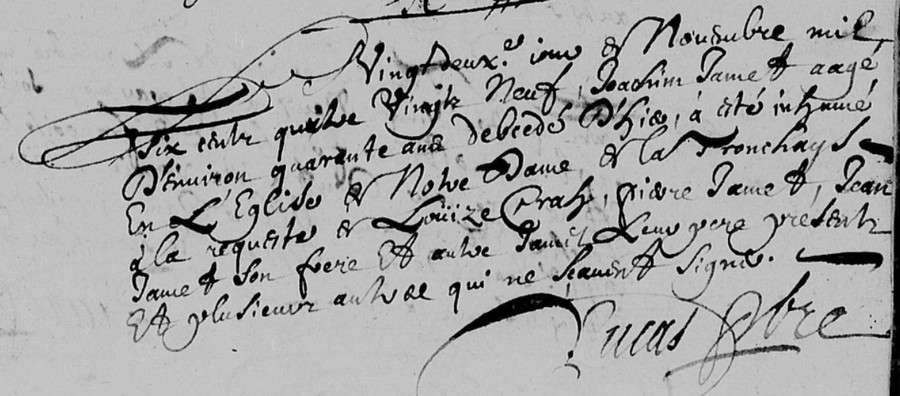 Vingt deux.e iour de Novembre mil
Six centz quatre Vingtz Neuf, Joachim Jamet aagé
D'Environ quarante ans debcedé D'hier, à esté inhumé
En L'Eglise de Notre Dame de la Tronchays
à la requeste de Louize, pierre Jamet, Jean
Jamet Son frere Et autre Jamet Leur pere presentz
Et plusieurs autres qui ne sçauent signer.
Lucas pbre